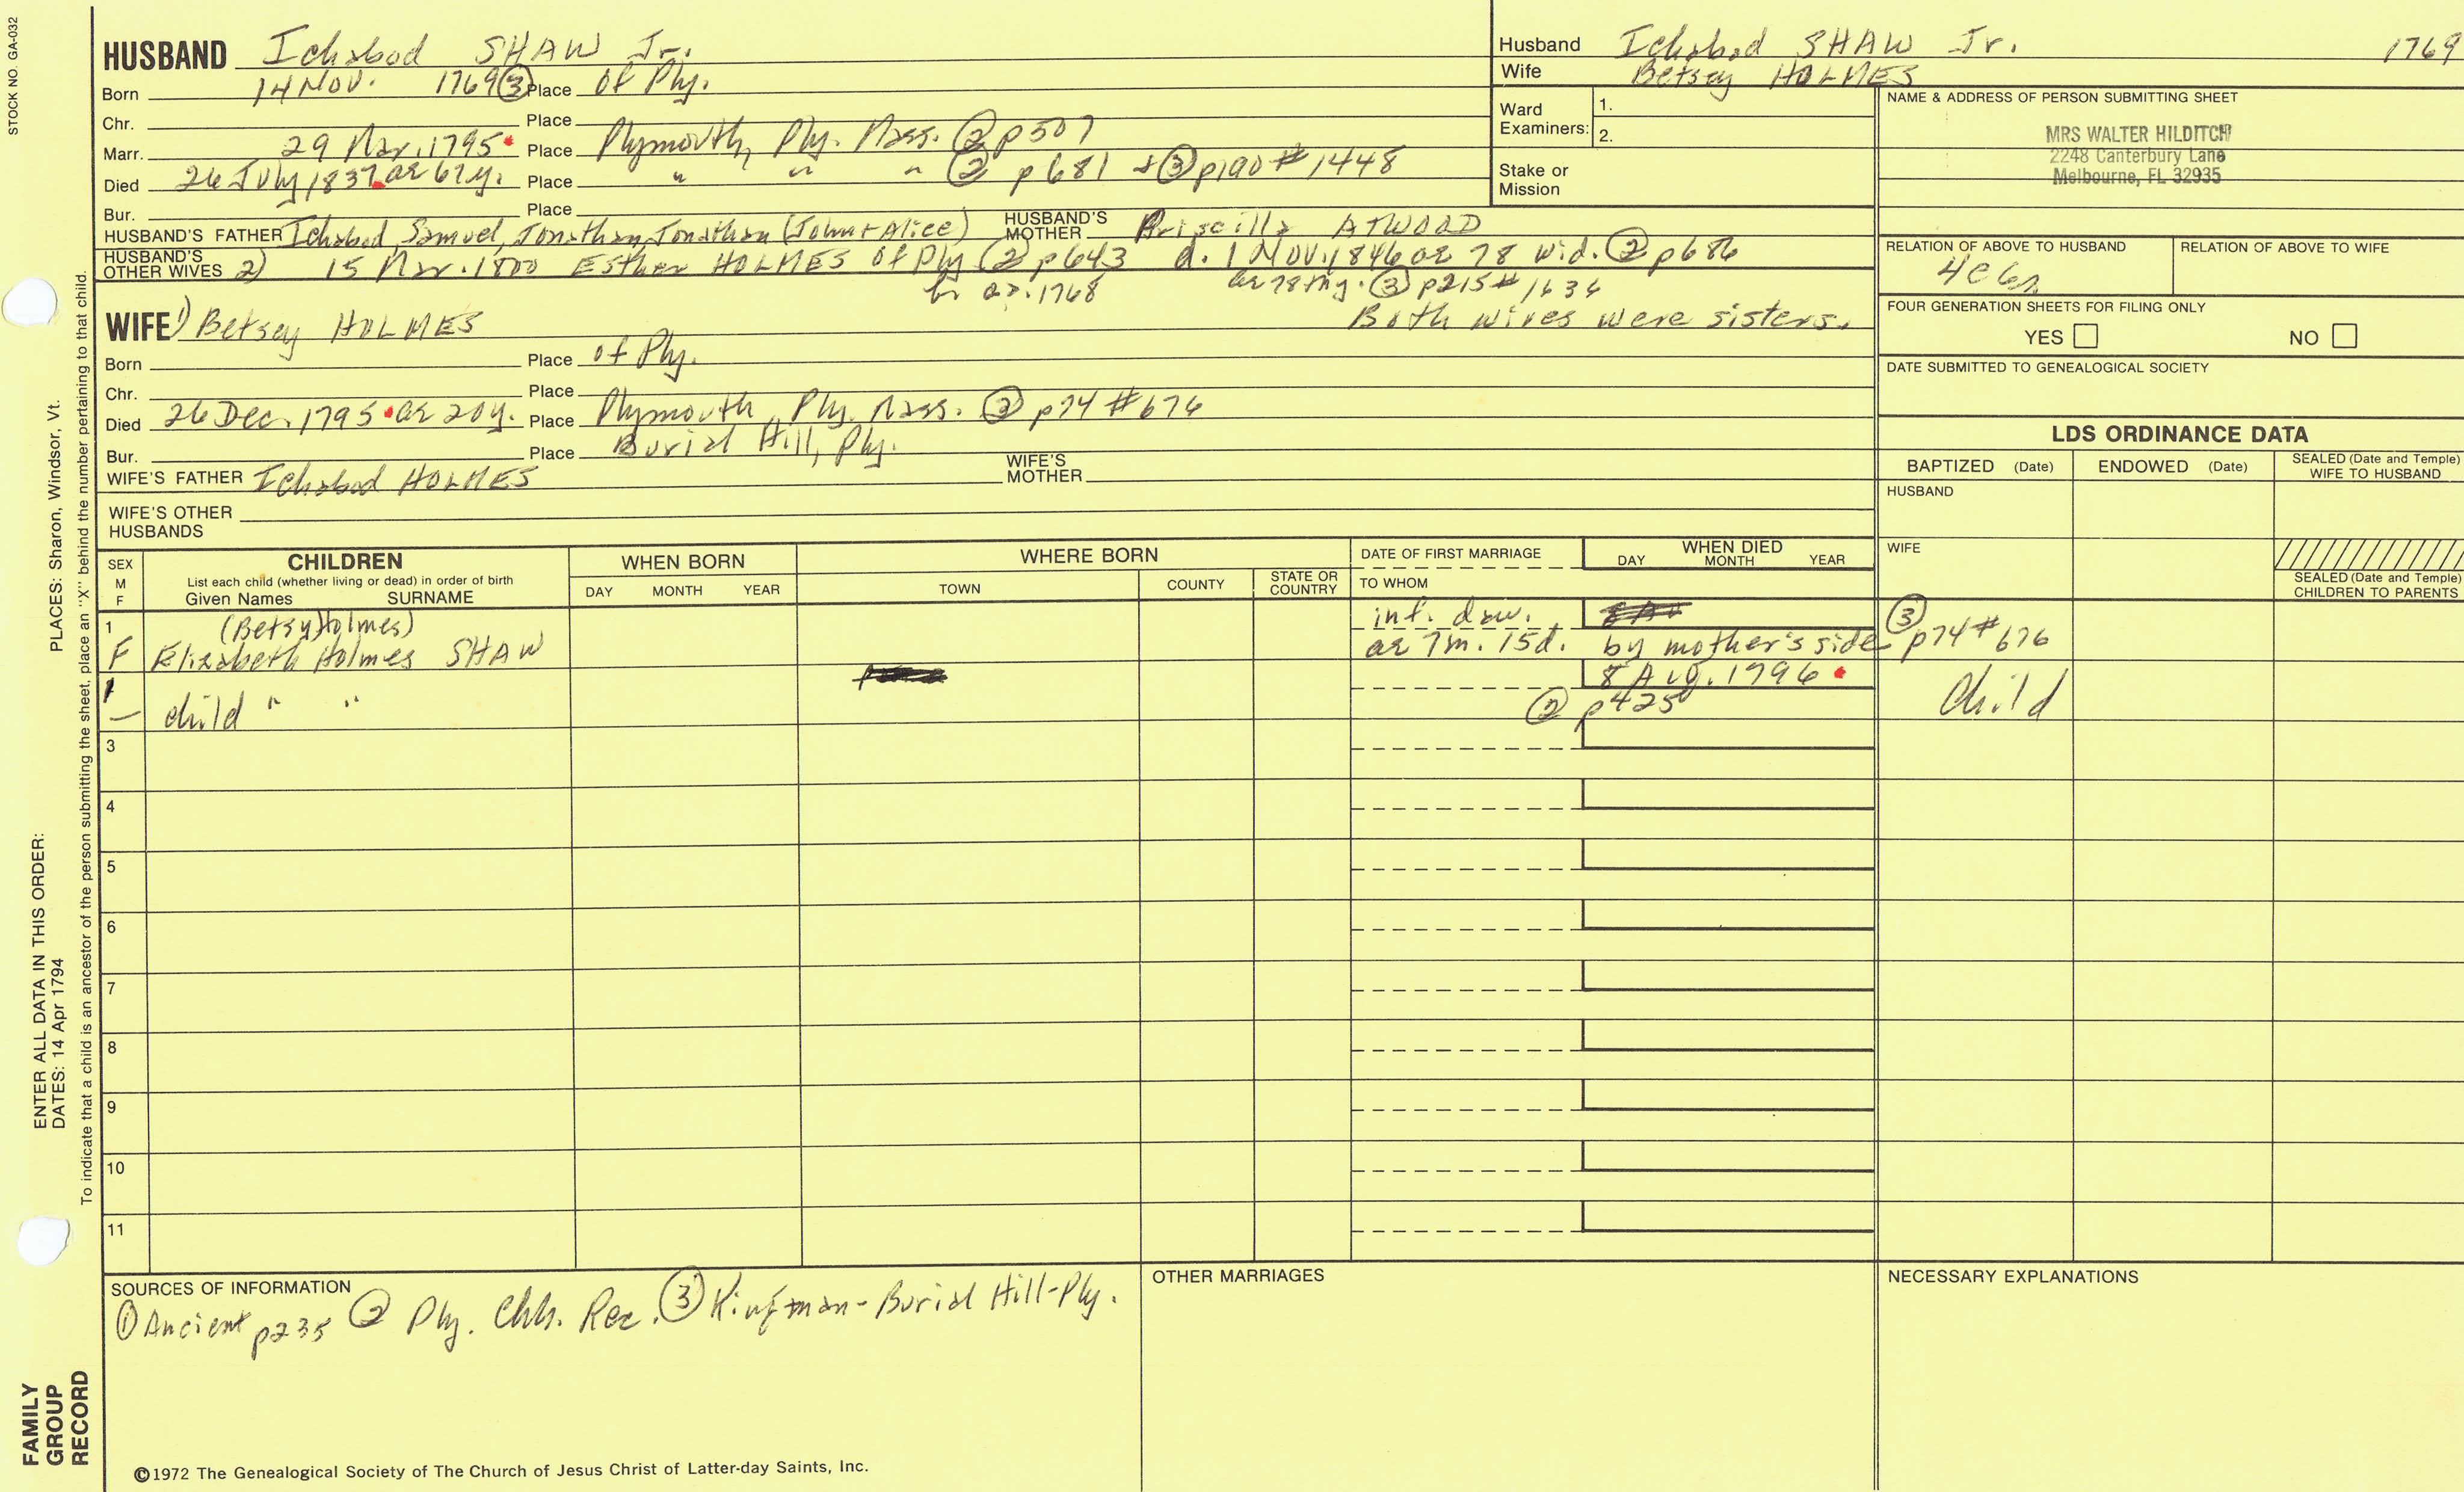 STOCK NO. GA-032
HUSBAND Ichabod SHAW Jr.
Born 14 Nov. 1769 ③ Place of Ply.
Chr. Place
Marr. 29 Mar. 1795 Place Plymouth, Ply. Mass. ② p507
Died 26 July 1837 ae 67y. Place " " " ② p681 + ③ p190 #1448
Bur. Place
HUSBAND'S FATHER Ichabod, Samuel, Jonathan, Jonathan (John + Alice) HUSBAND'S MOTHER Priscilla ATWOOD
HUSBAND'S OTHER WIVES 2) 15 Mar. 1800 Esther HOLMES of Ply ② p643 d. 1 Nov. 1846 ae 78 wid. ② p686
b. ca. 1768 ③ p215 # 1634
Both wives were sisters.
WIFE 1) Betsey HOLMES
Born Place of Ply.
Chr. Place
Died 26 Dec. 1795 ae 20y. Place Plymouth, Ply. Mass. ③ p74 #676
Bur. Place Burial Hill, Ply.
WIFE'S FATHER Ichabod HOLMES WIFE'S MOTHER
WIFE'S OTHER HUSBANDS
Husband Ichabod SHAW Jr. 1769
Wife Betsey HOLMES
Ward Examiners: 1.
2.
Stake or Mission
NAME & ADDRESS OF PERSON SUBMITTING SHEET
MRS WALTER HILDITCH
2248 Canterbury Lane
Melbourne, FL 32935
RELATION OF ABOVE TO HUSBAND RELATION OF ABOVE TO WIFE
FOUR GENERATION SHEETS FOR FILING ONLY
YES NO
DATE SUBMITTED TO GENEALOGICAL SOCIETY
LDS ORDINANCE DATA
BAPTIZED (Date) ENDOWED (Date) SEALED (Date and Temple) WIFE TO HUSBAND
HUSBAND
WIFE
SEALED (Date and Temple) CHILDREN TO PARENTS
SEX M F CHILDREN WHEN BORN WHERE BORN DATE OF FIRST MARRIAGE WHEN DIED
List each child (whether living or dead) in order of birth
Given Names SURNAME DAY MONTH YEAR TOWN COUNTY STATE OR COUNTRY TO WHOM DAY MONTH YEAR
1 (Betsy Holmes) inf. daw. ③
F Elizabeth Holmes SHAW ae 7m. 15d. by mother's side p74 #676
8 Aug. 1796
— child " " ② p425 Child
3
4
5
6
7
8
9
10
11
SOURCES OF INFORMATION
① Ancient p235 ② Ply. Chh. Rec. ③ Kingman - Burial Hill - Ply.
OTHER MARRIAGES
NECESSARY EXPLANATIONS
©1972 The Genealogical Society of The Church of Jesus Christ of Latter-day Saints, Inc.
ENTER ALL DATA IN THIS ORDER:
DATES: 14 Apr 1794
PLACES: Sharon, Windsor, Vt.
To indicate that a child is an ancestor of the person submitting the sheet, place an "X" behind the number pertaining to that child.
FAMILY
GROUP
RECORD